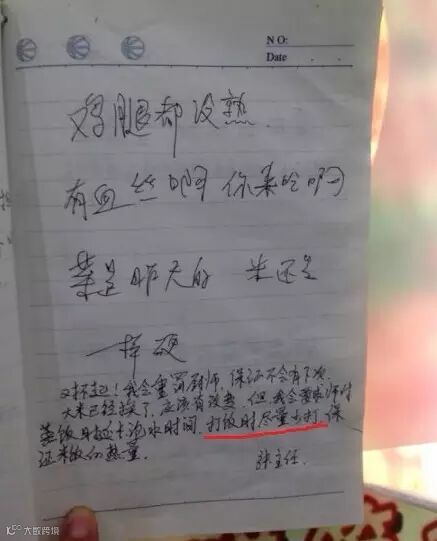 NO:
Date
鸡腿都没熟
有血丝啊 你来吃啊
菜是昨天的 米还是
一样硬
对不起!我会重罚厨师,保证不会有下次,
大米已经换了,应该有改变,但我会要求师付
蒸饭时延长泡水时间,打饭时尽量少打,保
证米饭的热量。
张主任
大数跨境